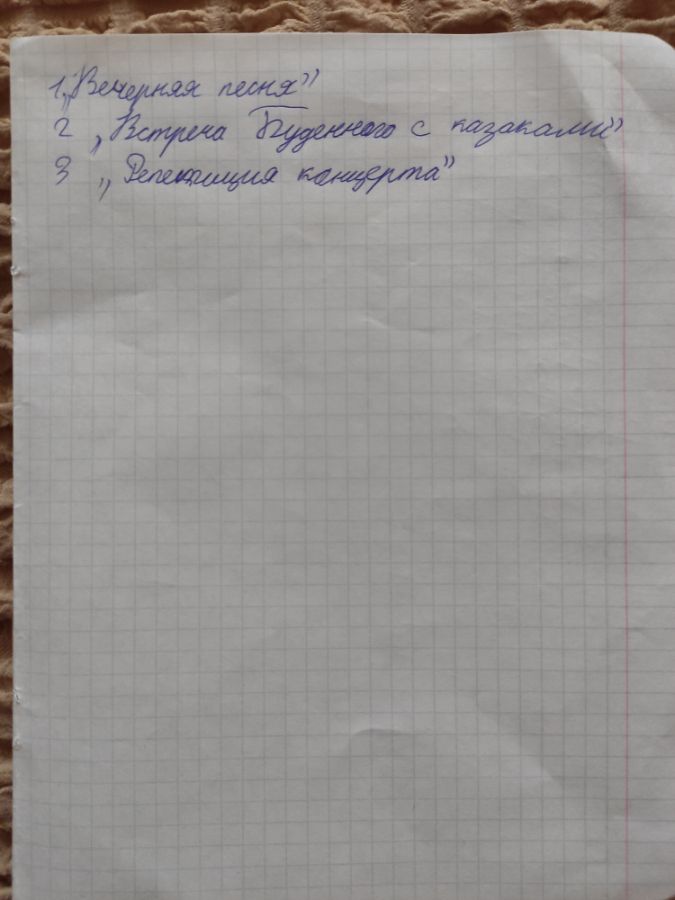 1 „Вечерняя песня”
2 „Встреча Буденного с казаками”
3 „Репетиция концерта”